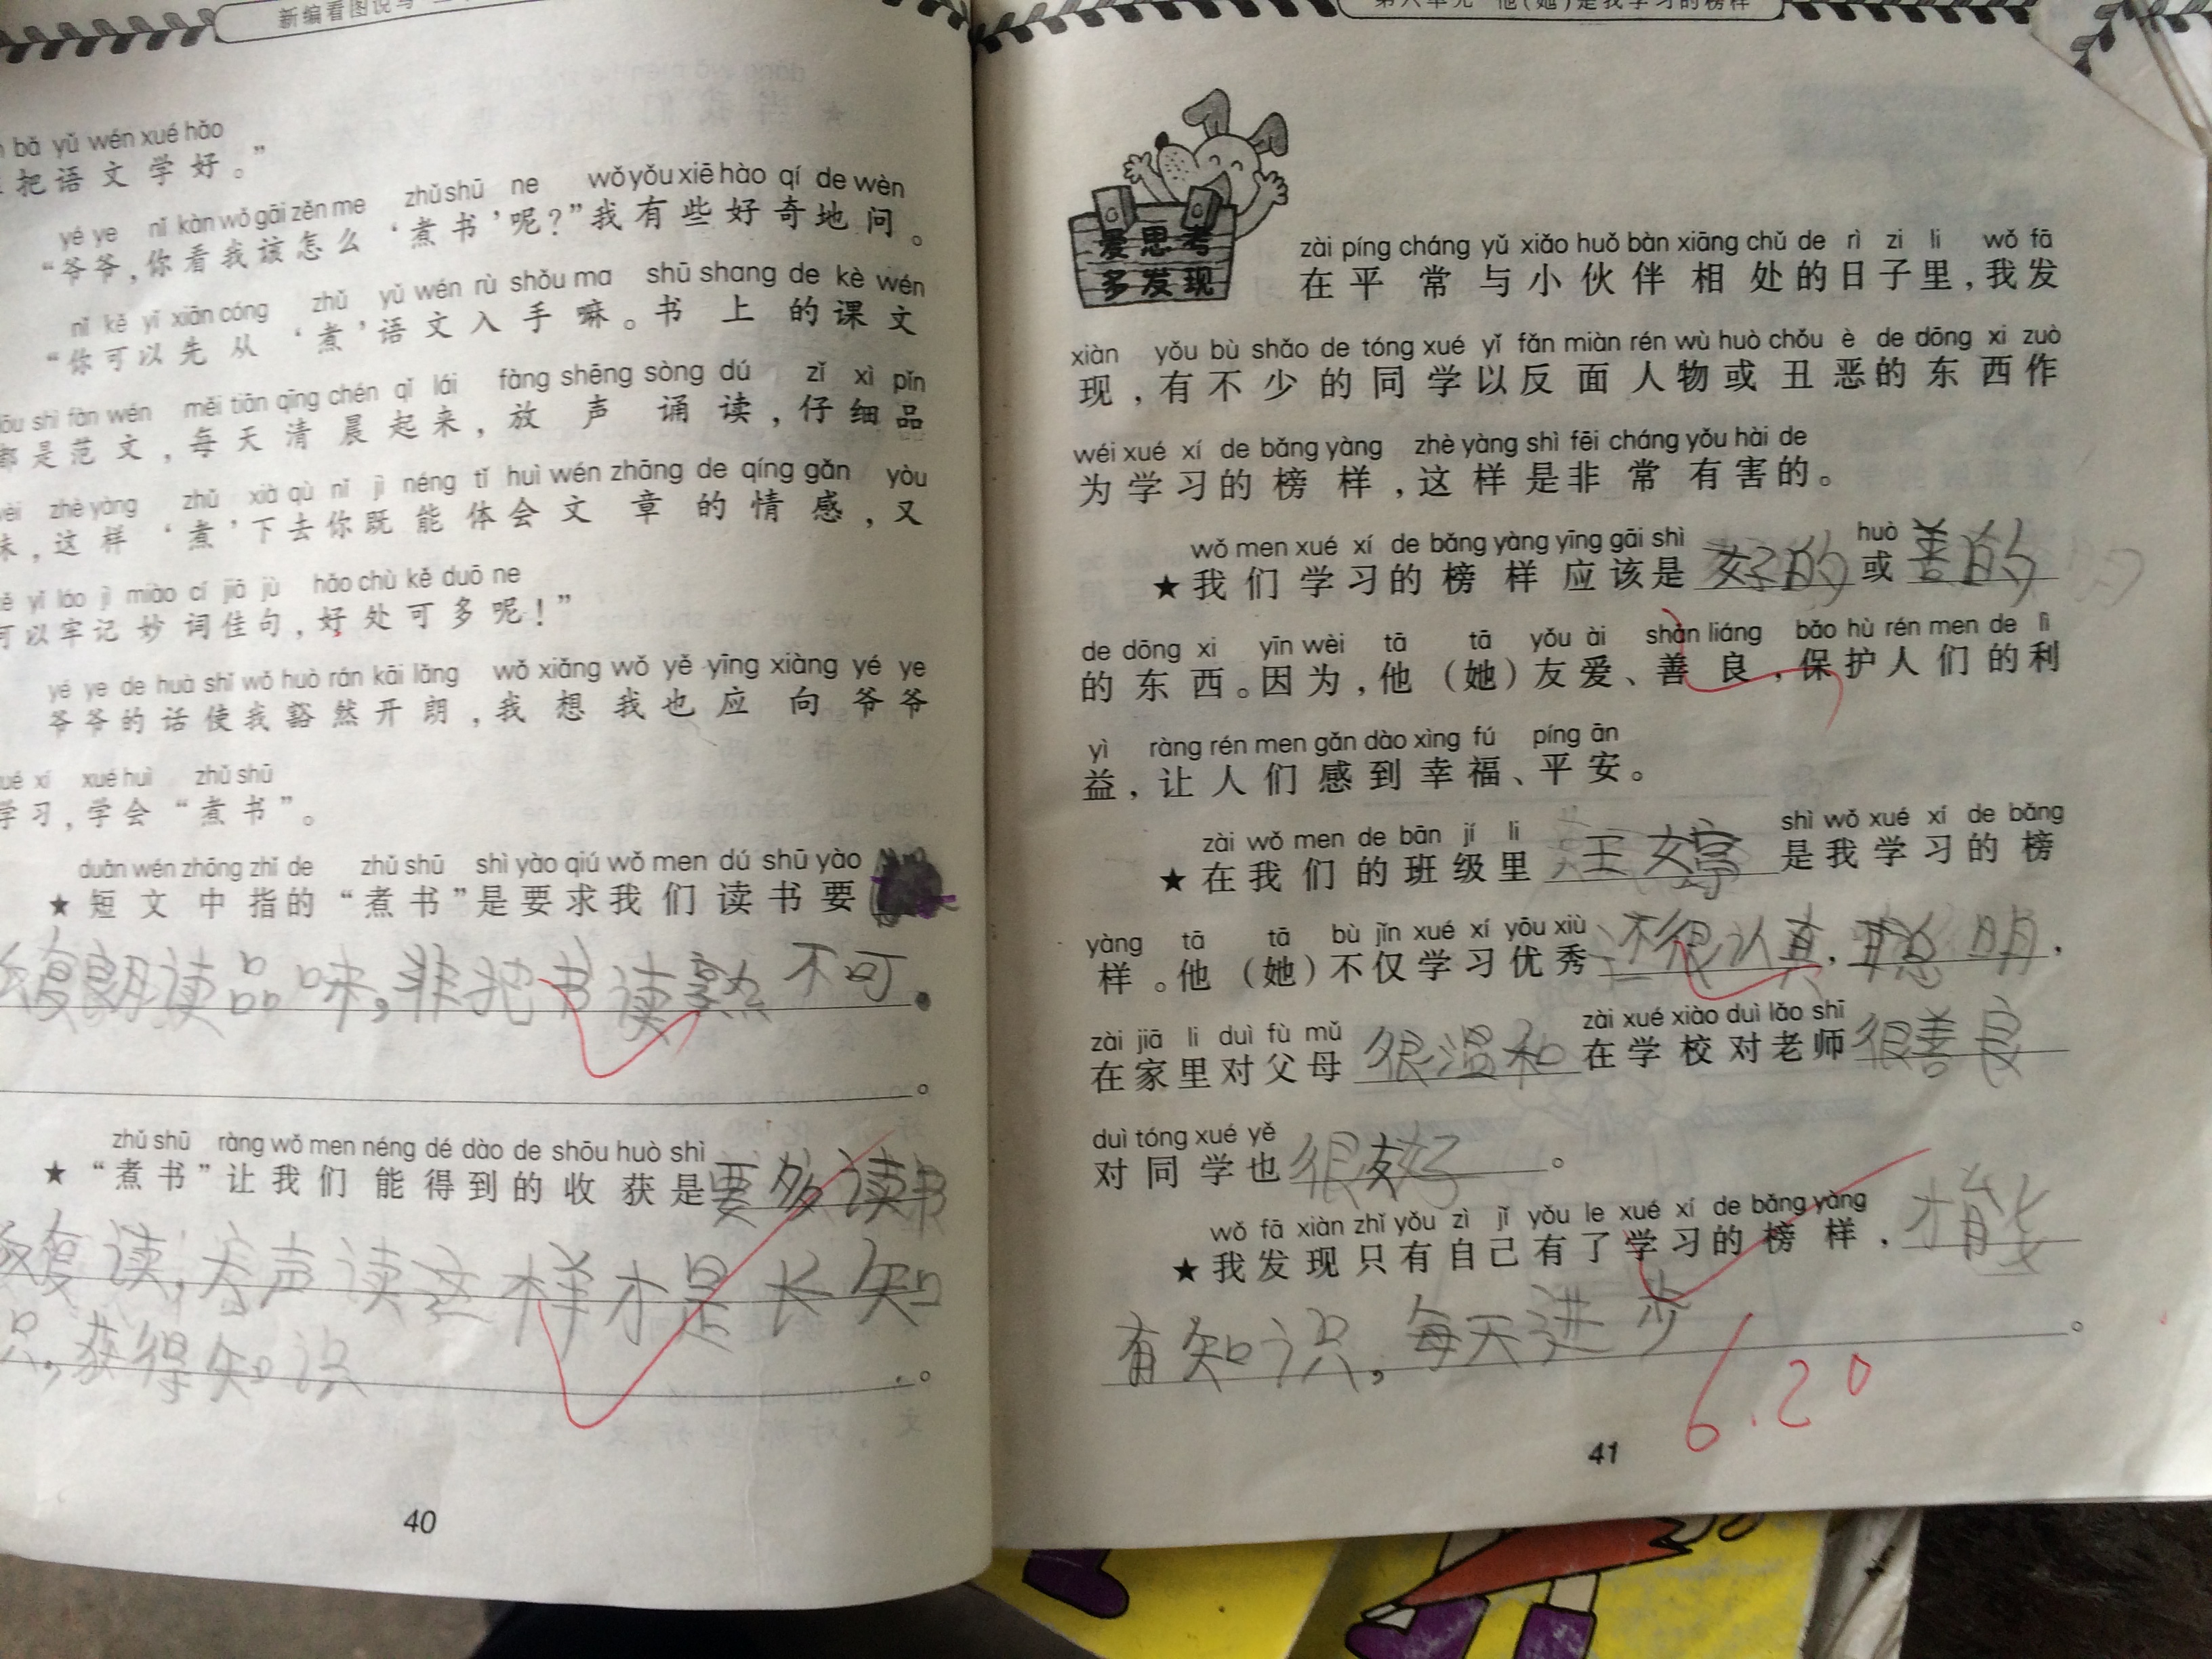 新编看图说写
bǎ yǔ wén xué hǎo
把语文学好。”
yé ye nǐ kàn wǒ gāi zěn me zhǔ shū ne wǒ yǒu xiē hào qí de wèn
“爷爷,你看我该怎么‘煮书’呢?”我有些好奇地问。
nǐ kě yǐ xiān cóng zhǔ yǔ wén rù shǒu ma shū shang de kè wén
“你可以先从‘煮’语文入手嘛。书上的课文
dōu shì fàn wén měi tiān qīng chén qǐ lái fàng shēng sòng dú zǐ xì pǐn
都是范文,每天清晨起来,放声诵读,仔细品
wèi zhè yàng zhǔ xià qù nǐ jì néng tǐ huì wén zhāng de qíng gǎn yòu
味,这样‘煮’下去你既能体会文章的情感,又
kě yǐ láo jì miào cí jiā jù hǎo chù kě duō ne
可以牢记妙词佳句,好处可多呢!”
yé ye de huà shǐ wǒ huò rán kāi lǎng wǒ xiǎng wǒ yě yīng xiàng yé ye
爷爷的话使我豁然开朗,我想我也应向爷爷
xué xí xué huì zhǔ shū
学习,学会“煮书”。
duǎn wén zhōng zhǐ de zhǔ shū shì yào qiú wǒ men dú shū yào
★短文中指的“煮书”是要求我们读书要
复朗读品味,非把书读熟不可。
zhǔ shū ràng wǒ men néng dé dào de shōu huò shì
★“煮书”让我们能得到的收获是要多读书
反复读,大声读这样才是长知
识,获得知识。
40
第六单元 他(她)是我学习的榜样
爱思考
多发现
zài píng cháng yǔ xiǎo huǒ bàn xiāng chǔ de rì zi li wǒ fā
在平常与小伙伴相处的日子里,我发
xiàn yǒu bù shǎo de tóng xué yǐ fǎn miàn rén wù huò chǒu è de dōng xi zuò
现,有不少的同学以反面人物或丑恶的东西作
wéi xué xí de bǎng yàng zhè yàng shì fēi cháng yǒu hài de
为学习的榜样,这样是非常有害的。
wǒ men xué xí de bǎng yàng yīng gāi shì huò
★我们学习的榜样应该是好的或善的
de dōng xi yīn wèi tā tā yǒu ài shàn liáng bǎo hù rén men de lì
的东西。因为,他(她)友爱、善良,保护人们的利
yì ràng rén men gǎn dào xìng fú píng ān
益,让人们感到幸福、平安。
zài wǒ men de bān jí li shì wǒ xué xí de bǎng
★在我们的班级里王婷是我学习的榜
yàng tā tā bù jǐn xué xí yōu xiù
样。他(她)不仅学习优秀还很认真,聪明,
zài jiā li duì fù mǔ zài xué xiào duì lǎo shī
在家里对父母很温和在学校对老师很善良
duì tóng xué yě
对同学也很友好。
wǒ fā xiàn zhǐ yǒu zì jǐ yǒu le xué xí de bǎng yàng
★我发现只有自己有了学习的榜样,才能
有知识,每天进步。
6.20
41